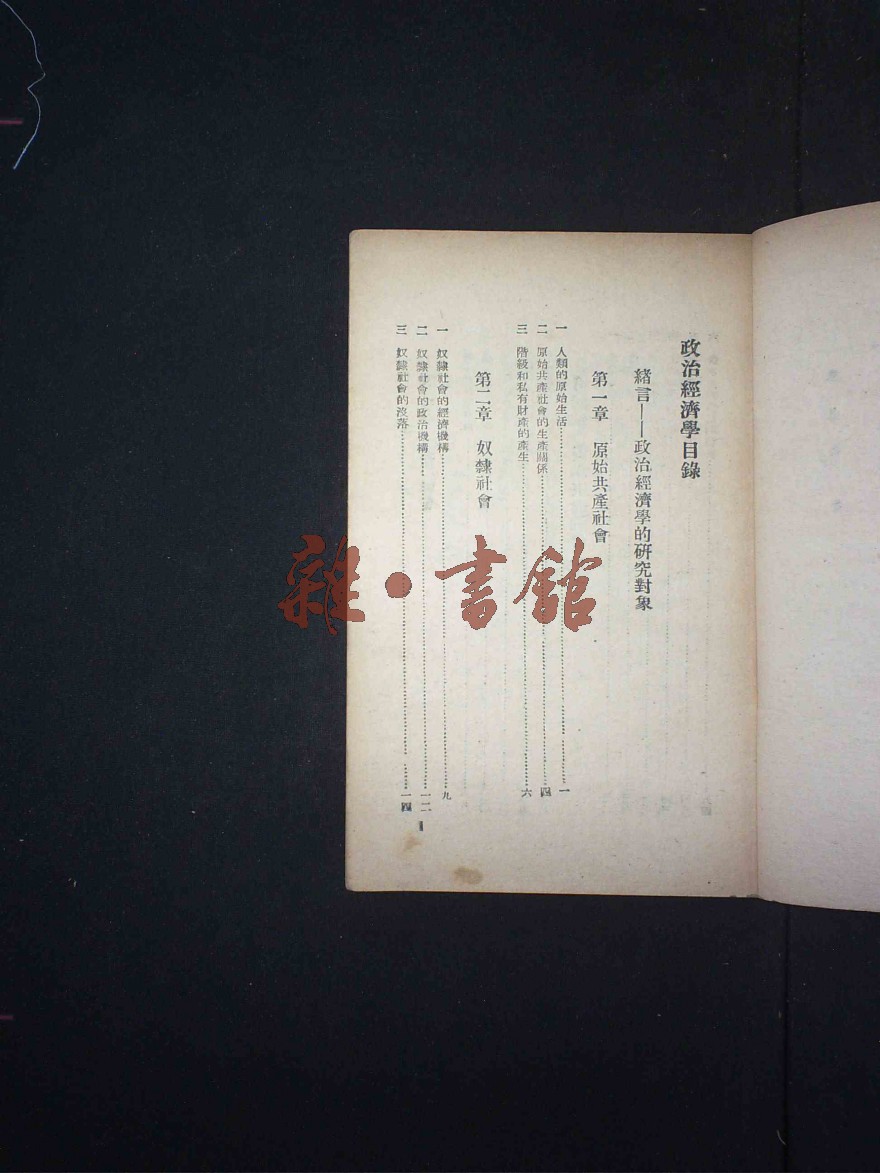 政治經濟學目錄
緒言——政治經濟學的研究對象
第一章 原始共產社會
一 人類的原始生活……一
二 原始共產社會的生產關係……四
三 階級和私有財產的產生……六
第二章 奴隸社會
一 奴隸社會的經濟機構……九
二 奴隸社會的政治機構……一二
三 奴隸社會的沒落……一四
雜·書館